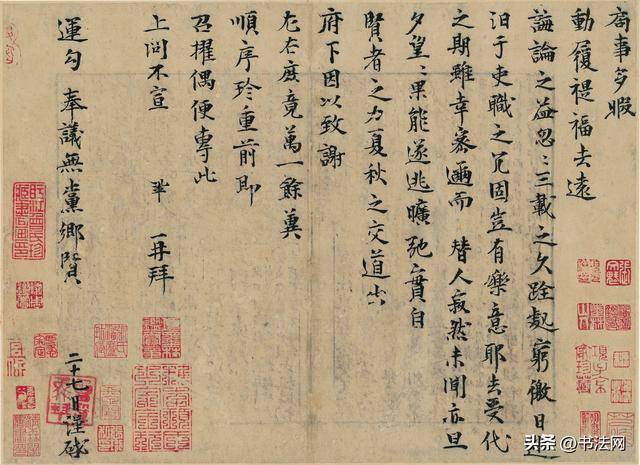 局事多暇
動履禔福去遠
誨論之益忽〻三載之久跧處窮徼日迷
汩于吏職之冗固豈有樂意耶去受代
之期雖幸密邇而替人寂然未聞亦旦
夕望〻果能遂逃曠弛實自
賢者之力夏秋之交道出
府下因以致謝
左右庶竟萬一餘冀
順序珍重前即
召擢偶便專此
上問不宣 鞏 再拜
運勾奉議無黨鄉賢 二十七日謹啟
头条 @书法网